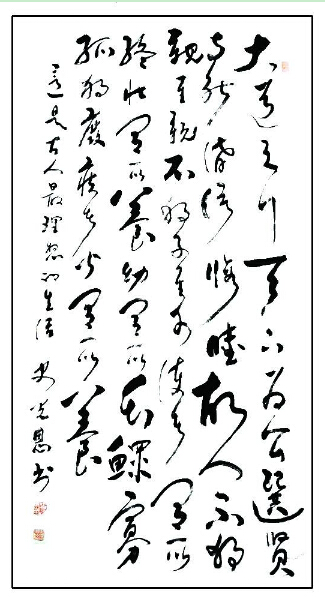 大道之行天下为公選賢
与能講信修睦故人不独
親其親不独子其子使老有所
终壮有所養幼有所长鰥寡
孤独廢疾者皆有所養
這是古人最理想的生活 史光恩书